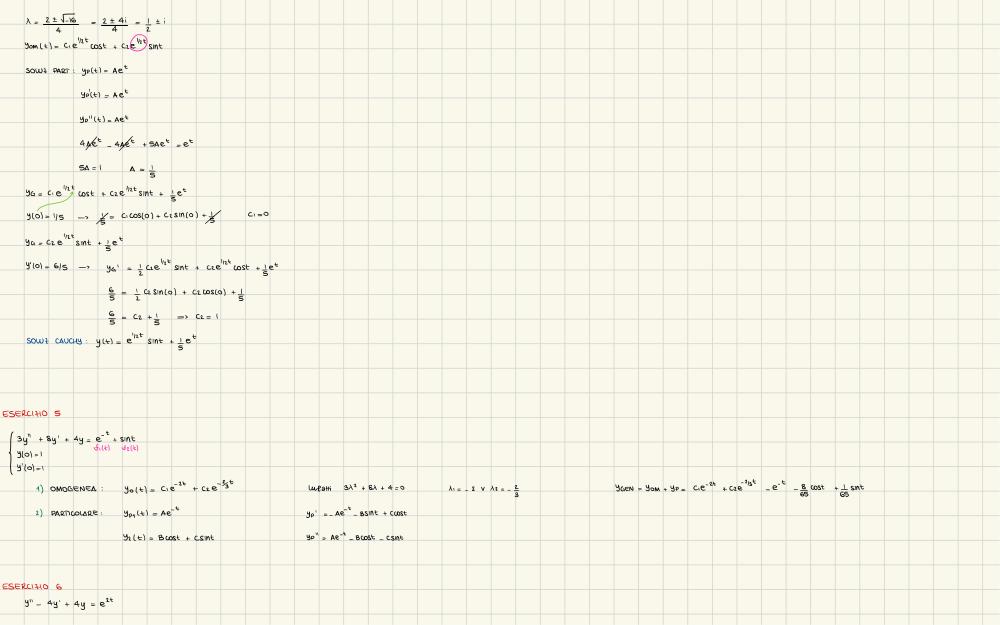 λ = (2 ± √-16)/4 = (2 ± 4i)/4 = 1/2 ± i
yom(t) = c₁e^(1/2t) cost + c₂e^(1/2t) sint
SOLUZ PART: yp(t) = Ae^t
yp'(t) = Ae^t
yp''(t) = Ae^t
4Ae^t - 4Ae^t + 5Ae^t = e^t
5A = 1 A = 1/5
yG = c₁e^(1/2t) cost + c₂e^(1/2t) sint + 1/5 e^t
y(0) = 1/5 → 1/5 = c₁cos(0) + c₂sin(0) + 1/5 c₁=0
yG = c₂e^(1/2t) sint + 1/5 e^t
y'(0) = 6/5 → yG' = 1/2 c₂e^(1/2t) sint + c₂e^(1/2t) cost + 1/5 e^t
6/5 = 1/2 c₂sin(0) + c₂cos(0) + 1/5
6/5 = c₂ + 1/5 => c₂ = 1
SOLUZ CAUCHY: y(t) = e^(1/2t) sint + 1/5 e^t
ESERCIZIO 5
3y'' + 8y' + 4y = e^-t + sint
f₁(t) f₂(t)
y(0) = 1
y'(0) = 1
1) OMOGENEA: yo(t) = c₁e^-2t + c₂e^(-2/3t) Infatti 3λ² + 8λ + 4 = 0 λ₁ = -2 ∨ λ₂ = -2/3 yGEN = yOM + yP = c₁e^-2t + c₂e^(-2/3t) - e^-t - 8/65 cost + 1/65 sint
2) PARTICOLARE: yp₁(t) = Ae^-t yp' = -Ae^-t - Bsint + Ccost
y₂(t) = Bcost + Csint yp'' = Ae^-t - Bcost - Csint
ESERCIZIO 6
y'' - 4y' + 4y = e^2t